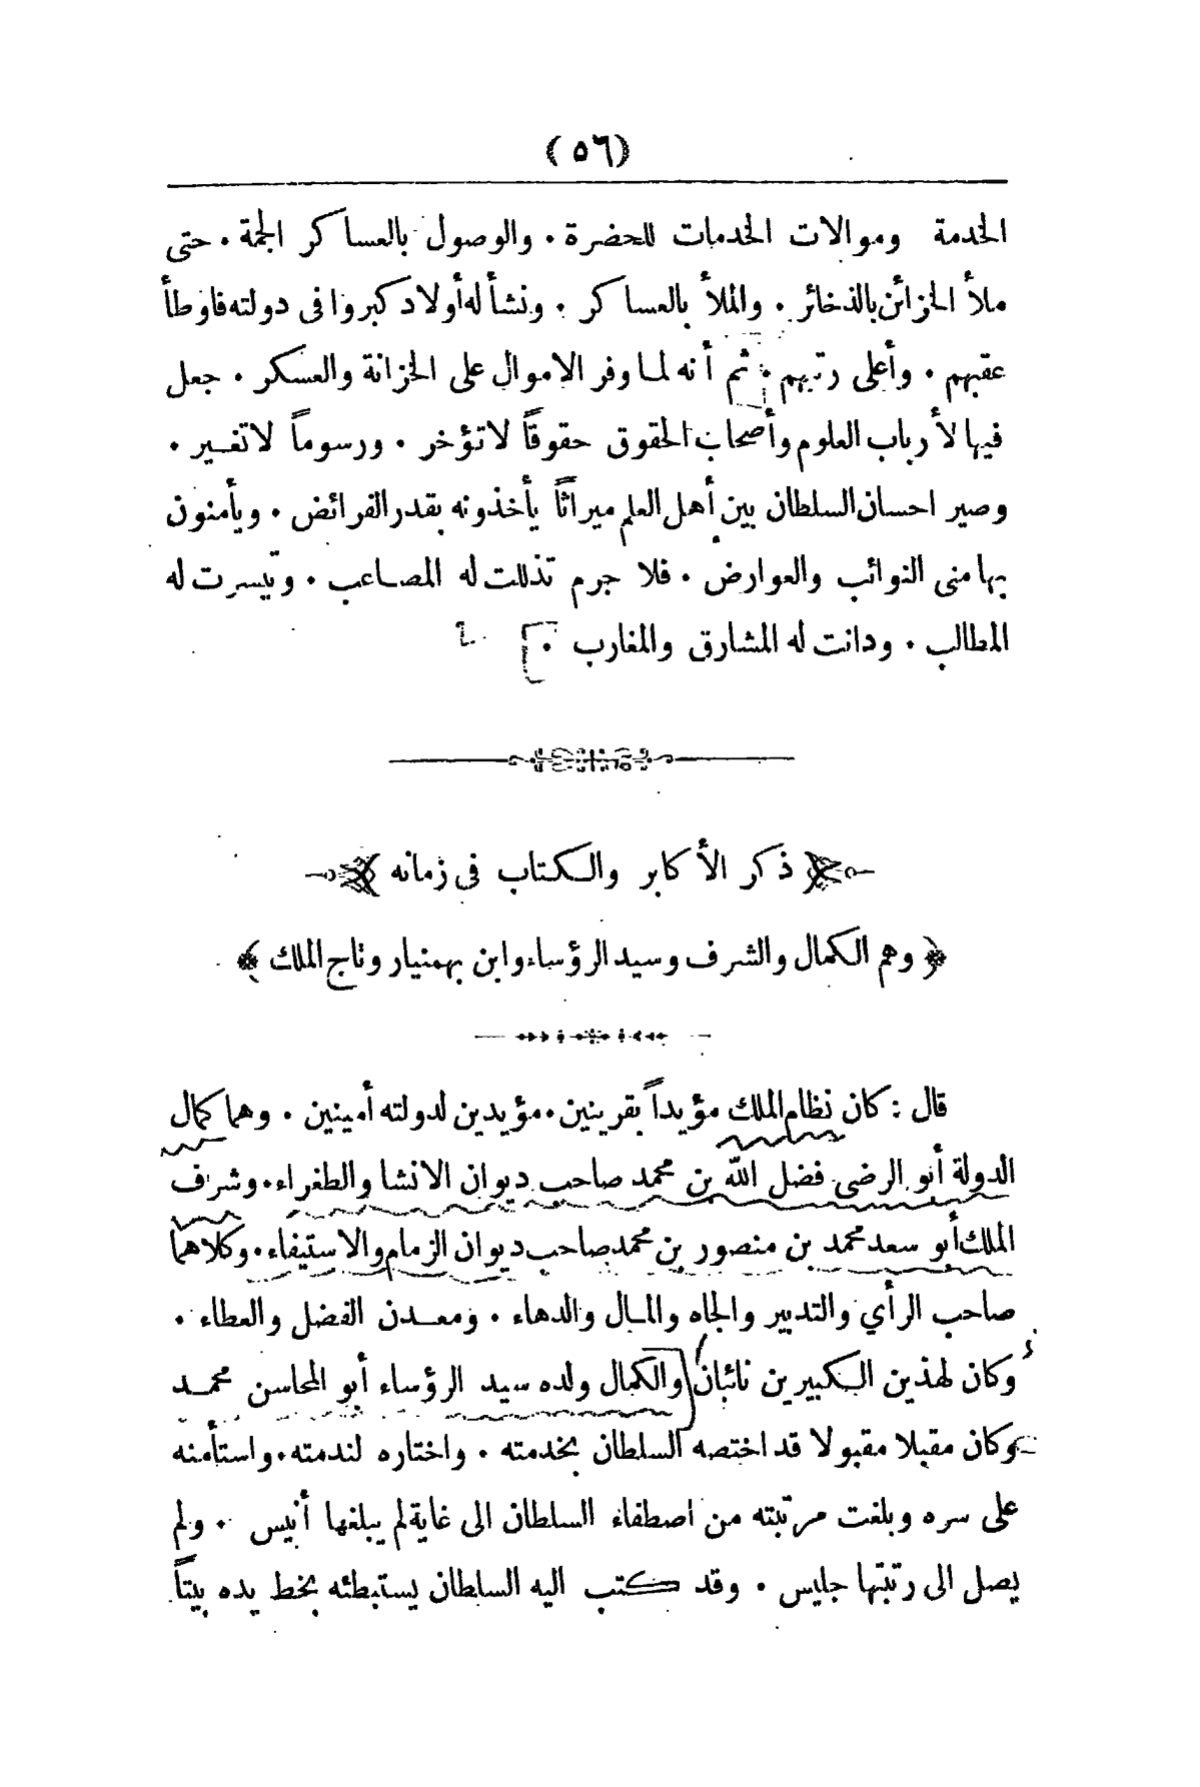 (٥٦)
الخدمة وموالات الخدمات للحضرة . والوصول بالعساكر الجمة . حتى
ملأ الخزائن بالذخائر . والملأ بالعساكر . ونشأ له أولاد كبروا فى دولته فاوطأ
عقبهم . وأعلى رتبهم . ثم أنه لما وفر الاموال على الخزانة والعسكر . جعل
فيها لأرباب العلوم وأصحاب الحقوق حقوقاً لا تؤخر . ورسوماً لا تغير .
وصير احسان السلطان بين أهل العلم ميراثاً يأخذونه بقدر الفرائض . ويأمنون
بها منى النوائب والعوارض . فلا جرم تذللت له المصاعب . وتيسرت له
المطالب . ودانت له المشارق والمغارب .
ذكر الأكابر والكتاب فى زمانه
﴿ وهم الكمال والشرف وسيد الرؤساء وابن بهمنيار وتاج الملك ﴾
قال : كان نظام الملك مؤيداً بقرينين . مؤيدين لدولته أمينين . وهما كمال
الدولة أبو الرضى فضل الله بن محمد صاحب ديوان الانشا والطغراء . وشرف
الملك أبو سعد محمد بن منصور بن محمد صاحب ديوان الزمام والاستيفاء . وكلاهما
صاحب الرأي والتدبير والجاه والمال والدهاء . ومعدن الفضل والعطاء .
وكان لهذين الكبيرين نائبان والكمال ولده سيد الرؤساء أبو المحاسن محمد
وكان مقبلا مقبولا قد اختصه السلطان بخدمته . واختاره لندمته . واستأمنه
على سره وبلغت مرتبته من اصطفاء السلطان الى غاية لم يبلغها أنيس . ولم
يصل الى رتبتها جليس . وقد كتب اليه السلطان يستبطئه بخط يده بيتاً